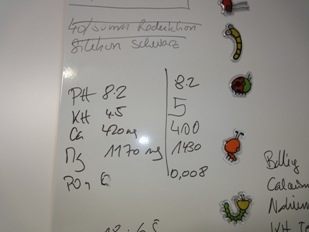 40/summer Reduktion
Silikon schwarz
PH 8.2 8.2
KH 4.5 5
Ca 420mg 400
Mg 1170 mg 1430
PO4 0,008
Balling
Calcium
KH